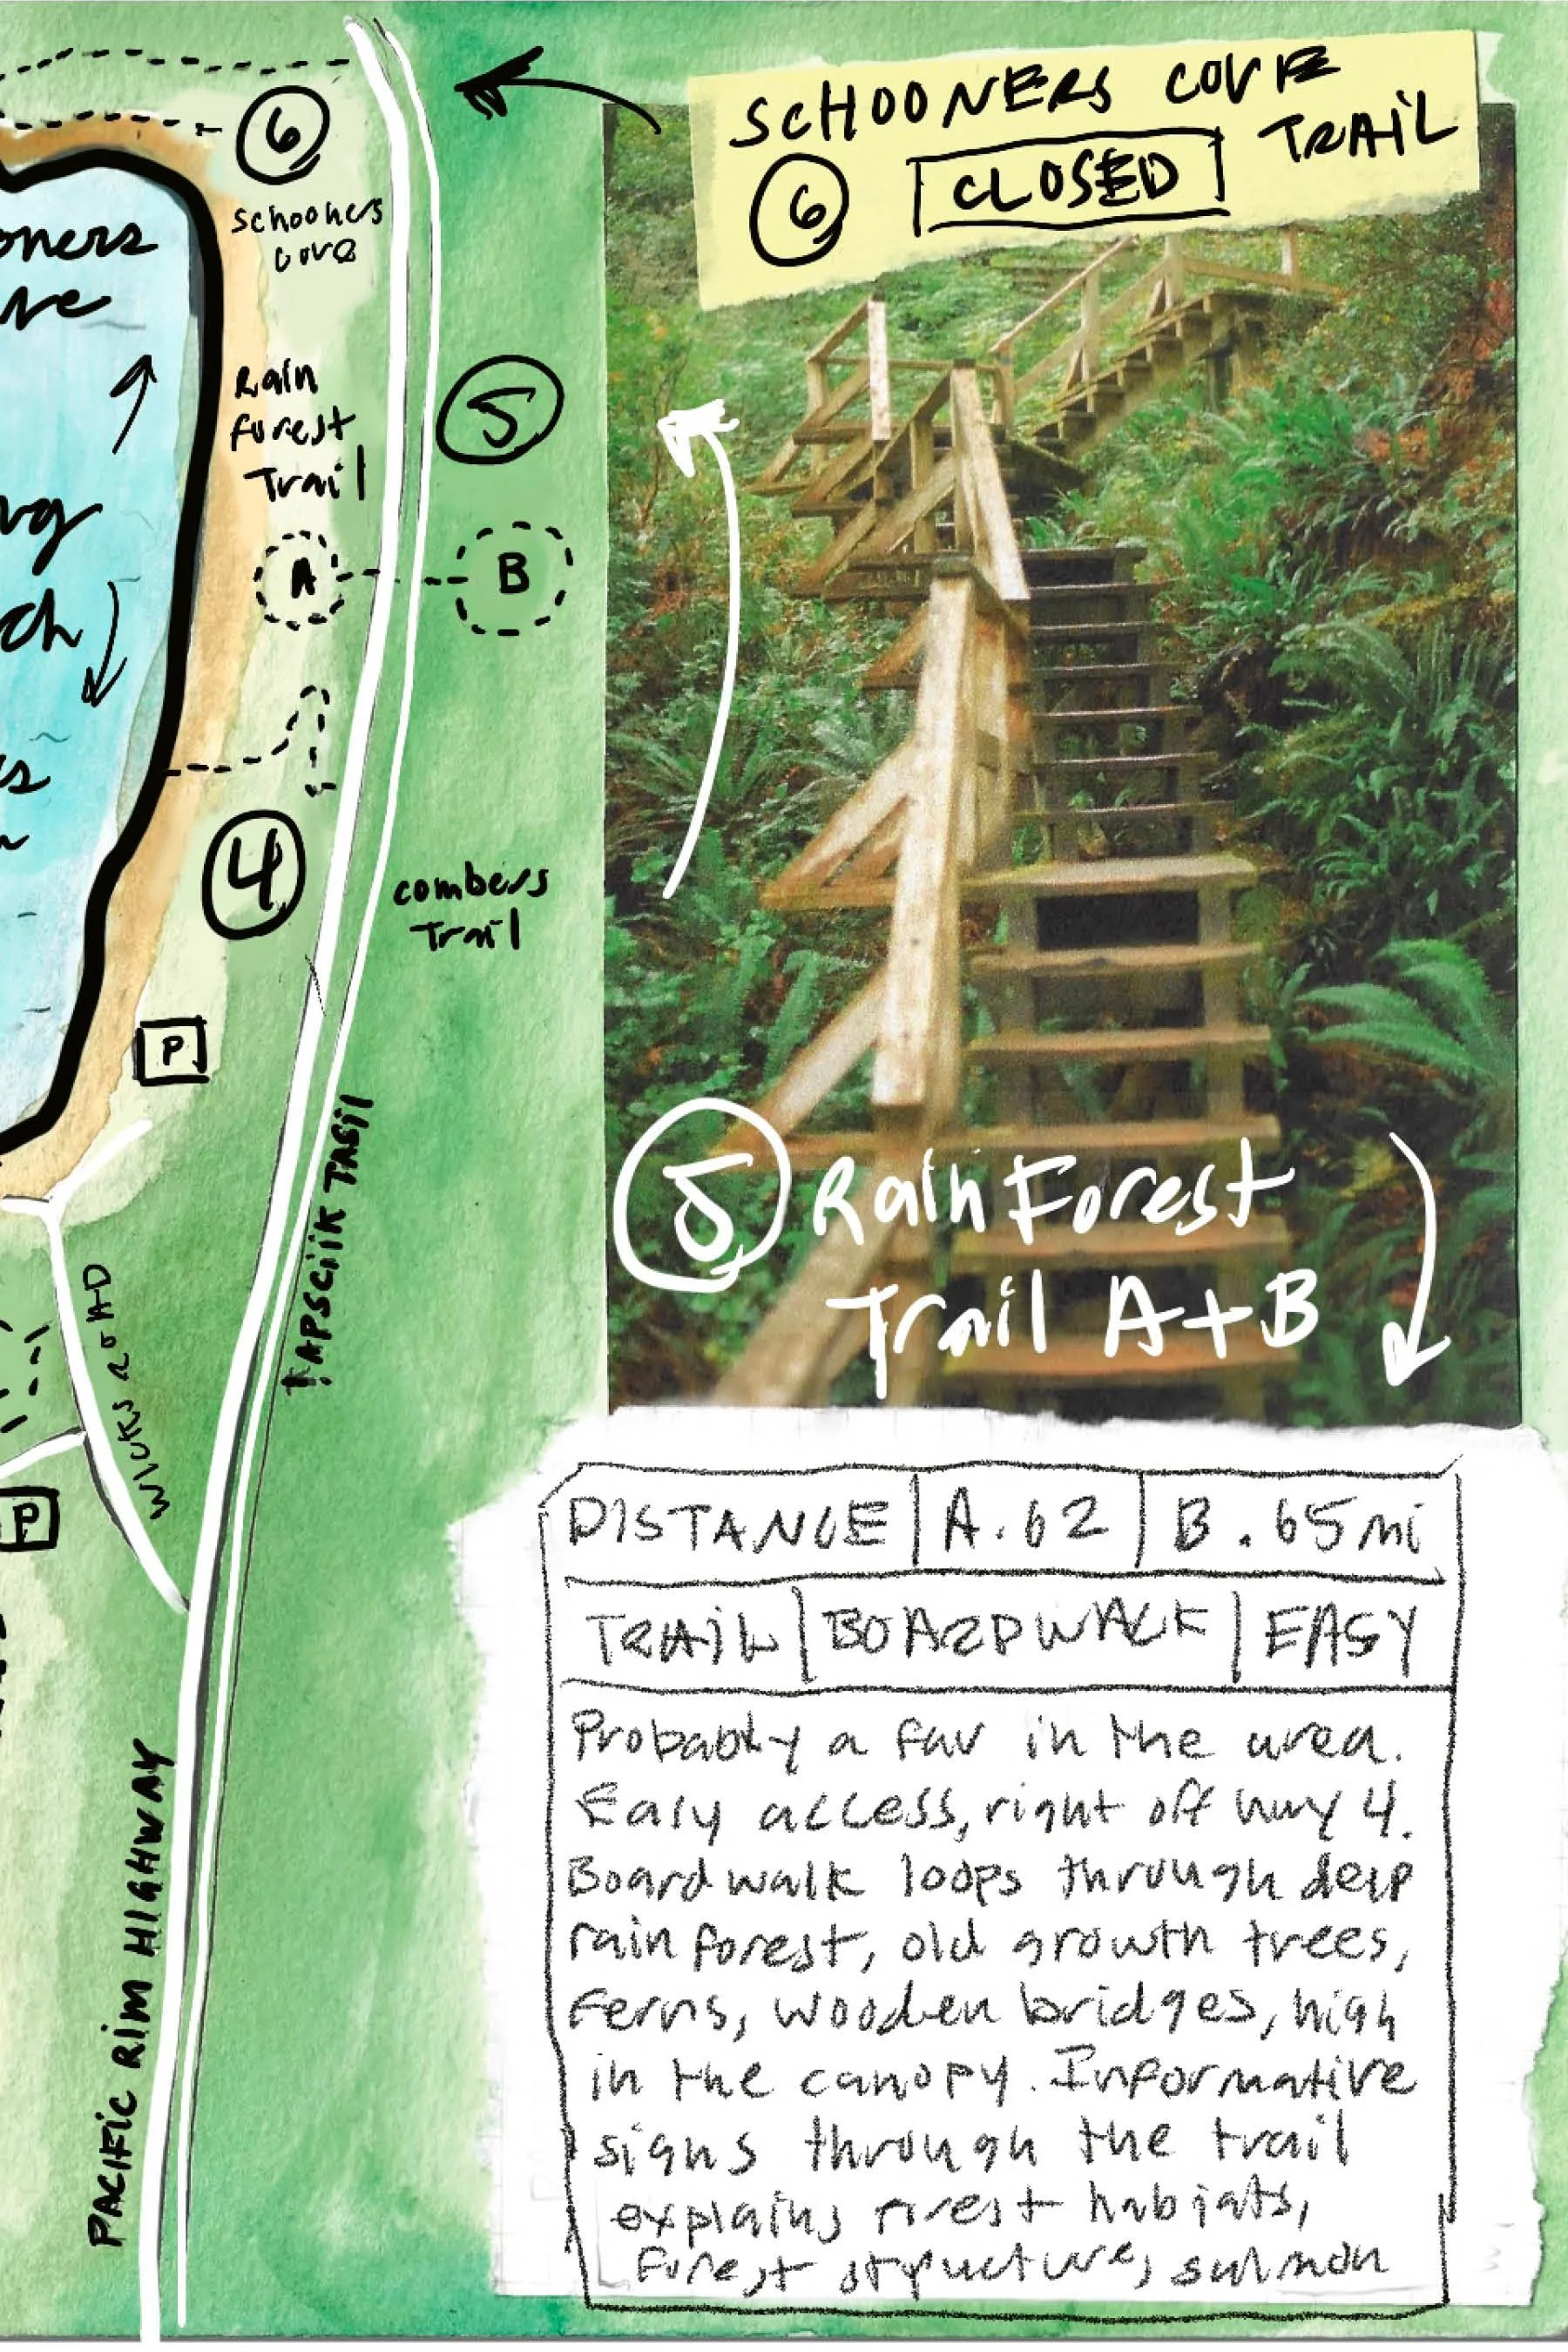 SCHOONERS COVE
TRAIL
6 CLOSED
6
schooners
cove
5
Rain
forest
Trail
A
B
4
combers
Trail
P
ĥAPSCIIK TAŠII
WICKS ROAD
P
PACIFIC RIM HIGHWAY
5 Rain Forest
Trail A+B
DISTANCE | A .62 | B .65mi
TRAIL | BOARDWALK | EASY
Probably a fav in the area.
Easy access, right off hwy 4.
Boardwalk loops through deep
rain forest, old growth trees,
ferns, wooden bridges, high
in the canopy. Informative
signs through the trail
explains forest habiats,
forest structure, salmon